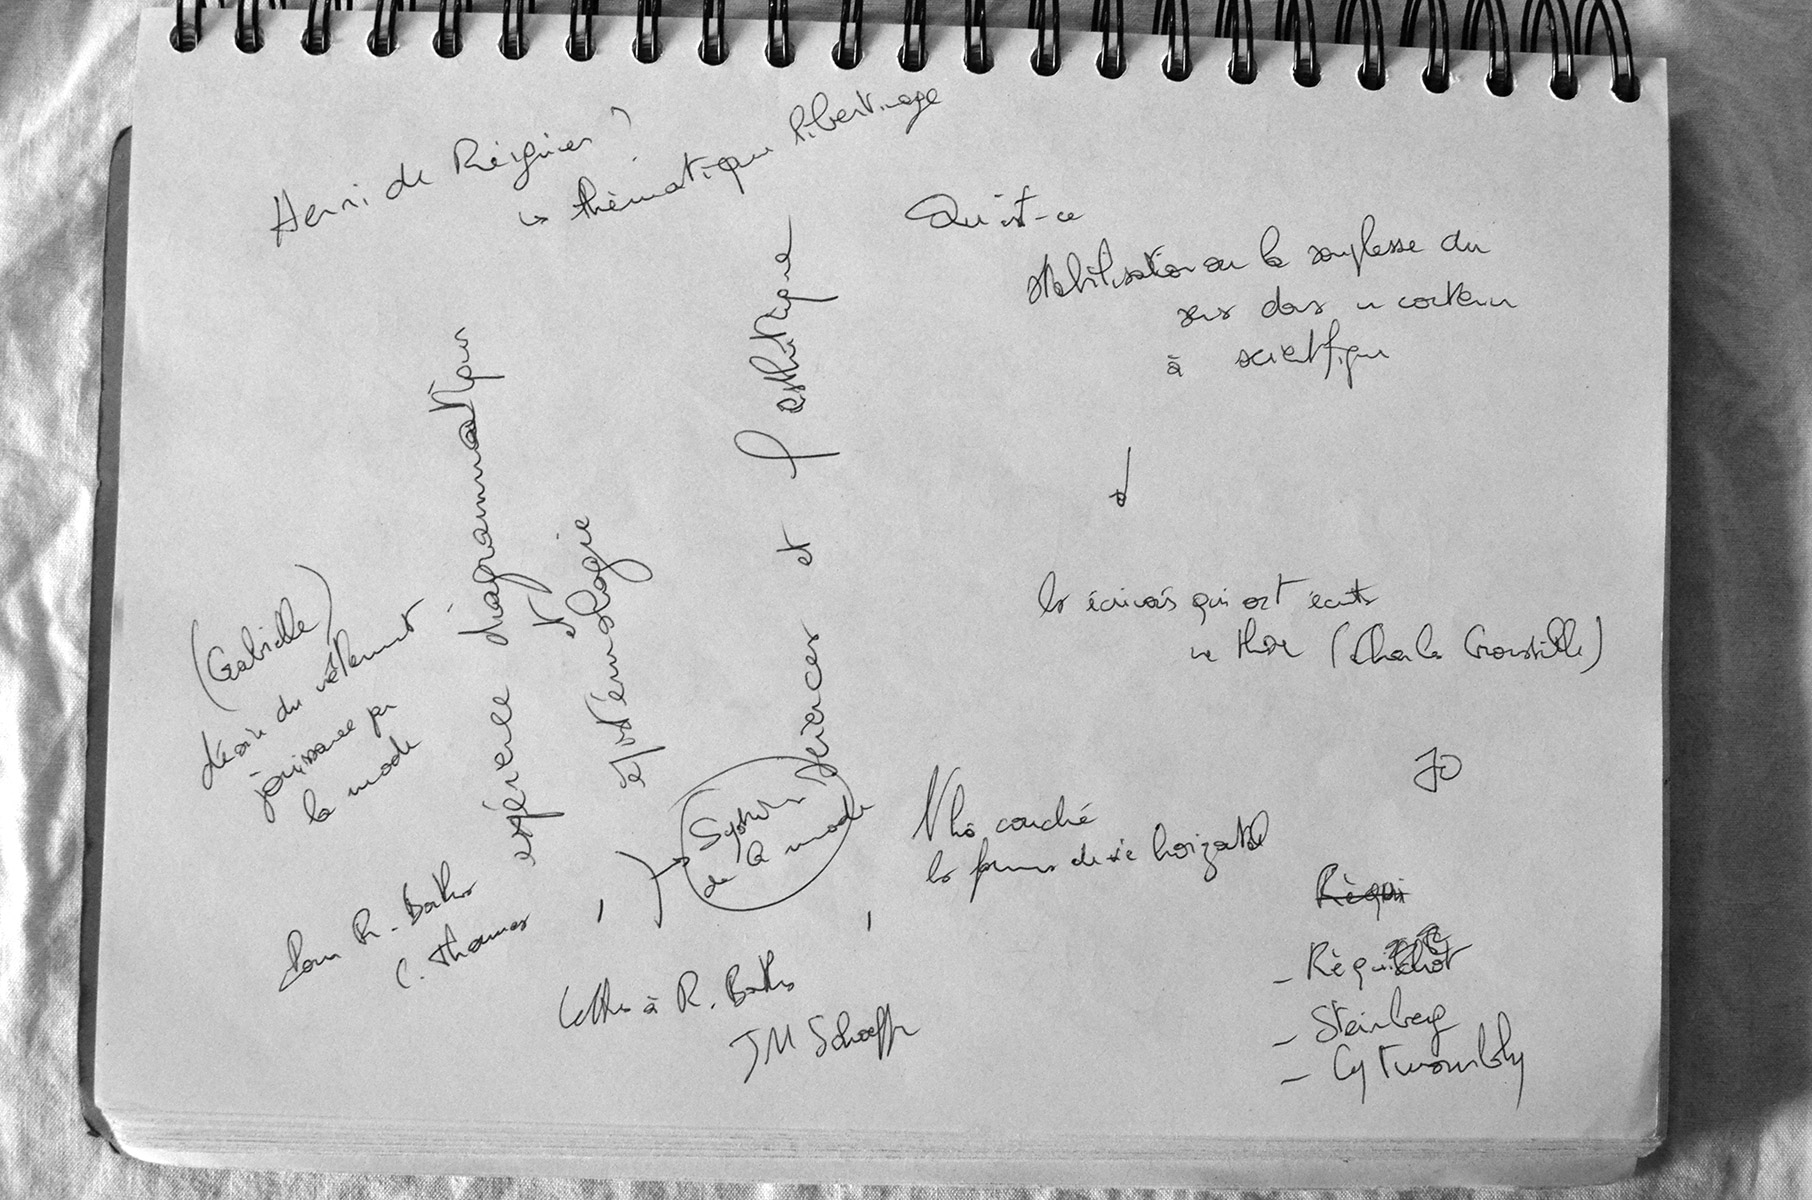 Henri de Régnier ?
↳ thématique libertinage
Qu'est-ce
stabilisation ou la souplesse du
sens dans un contenu
à scientifique
↓
les écrivains qui ont écrits
une thèse (Charles Grandville)
JO
(Gabrielle)
désir du vêtement
jouissance par
la mode
expérience diagrammatique
et
épistémologie
sciences et l'esthétique
Système
de la mode
pour R. Barthes
C. Thomas
,
Lettre à R. Barthes
JM Schaeffer
,
couché
les formes de vie horizontal
Réqui
- Réquichot
- Steinberg
- Cy Twombly